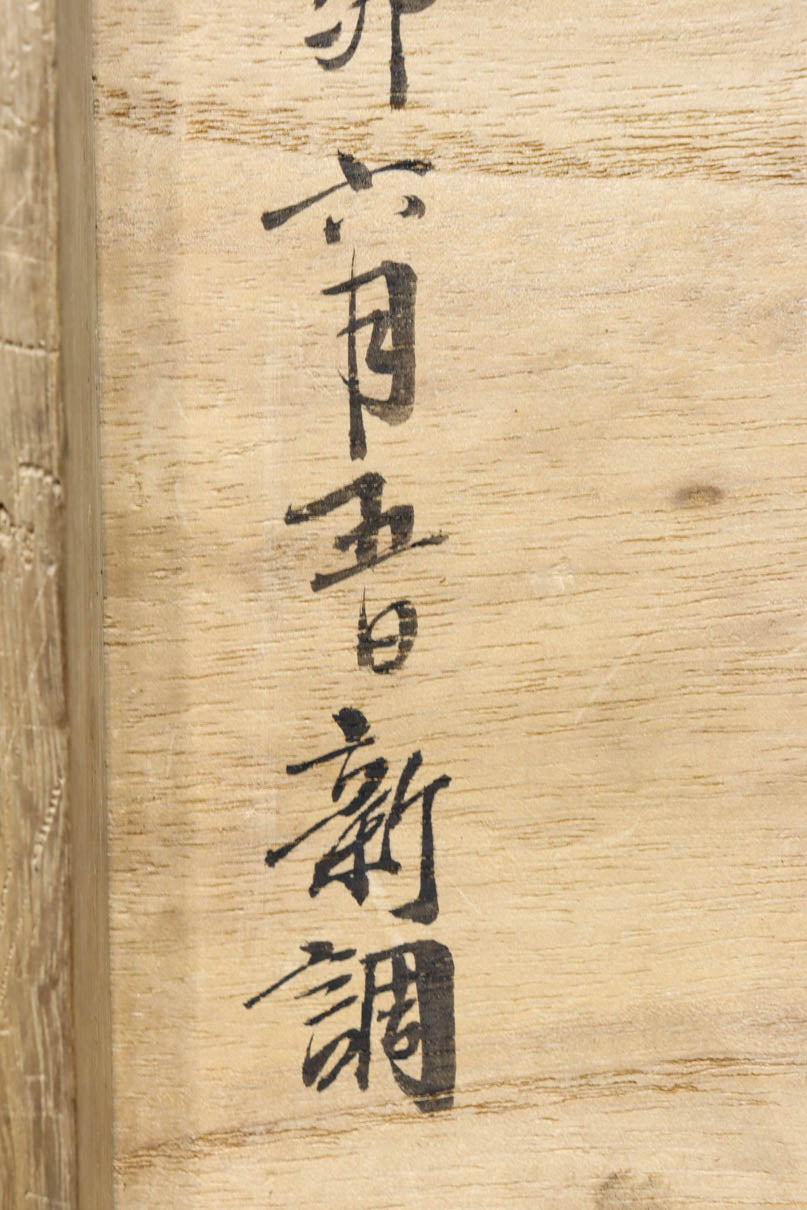 卯六月五日新調